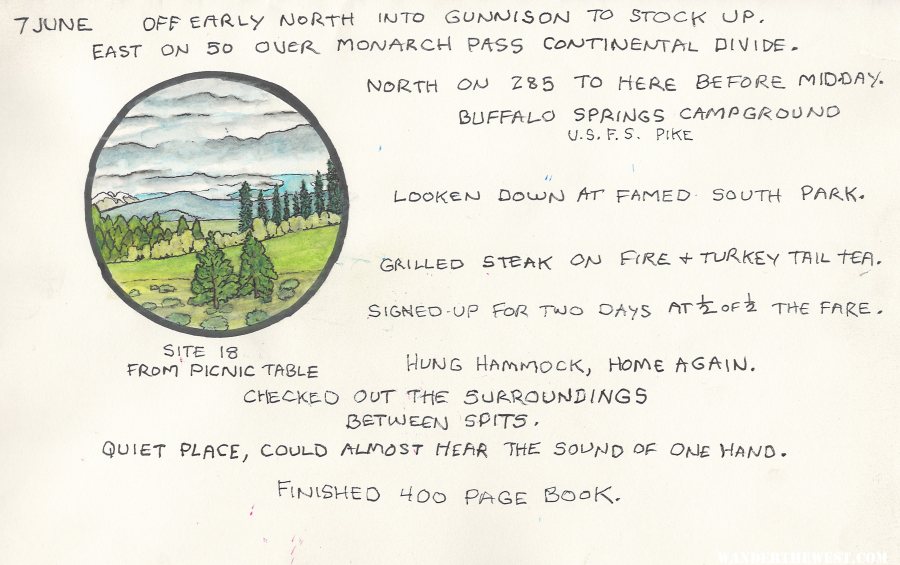 7 JUNE OFF EARLY NORTH INTO GUNNISON TO STOCK UP.
EAST ON 50 OVER MONARCH PASS CONTINENTAL DIVIDE.
NORTH ON 285 TO HERE BEFORE MIDDAY.
BUFFALO SPRINGS CAMPGROUND
U.S.F.S. PIKE
LOOKEN DOWN AT FAMED SOUTH PARK.
GRILLED STEAK ON FIRE + TURKEY TAIL TEA.
SIGNED-UP FOR TWO DAYS AT ½ OF ½ THE FARE.
SITE 18
FROM PICNIC TABLE
HUNG HAMMOCK, HOME AGAIN.
CHECKED OUT THE SURROUNDINGS
BETWEEN SPITS.
QUIET PLACE, COULD ALMOST HEAR THE SOUND OF ONE HAND.
FINISHED 400 PAGE BOOK.
WANDERTHEWEST.COM